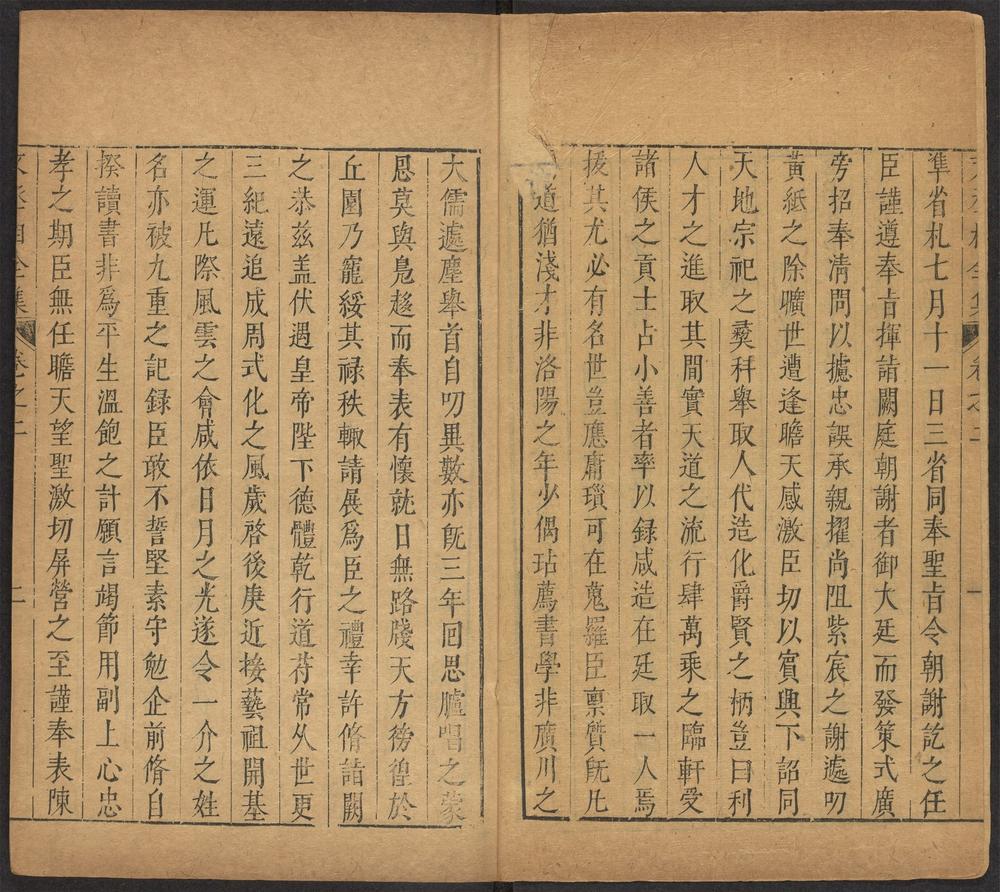 文丞相全集 卷之二 一
準省札七月十一日三省同奉聖旨令朝謝訖之任
臣謹遵奉旨揮詣闕庭朝謝者御大廷而發策式廣
旁招奉清問以攄忠誤承親擢尚阻紫宸之謝遽叨
黃紙之除曠世遭逢瞻天感激臣切以賓興下詔同
天地宗祀之彛科舉取人代造化爵賢之柄豈曰利
人才之進取其間實天道之流行肆萬乘之臨軒受
諸侯之貢士占小善者率以録咸造在廷取一人焉
拔其尤必有名世豈應庸瑣可在蒐羅臣禀質旣凡
道猶淺才非洛陽之年少偶玷薦書學非廣川之
大儒遽塵舉首自叨異數亦旣三年囘思臚唱之蒙
恩莫與鳧趍而奉表有懷就日無路牋天方徬徨於
丘園乃寵綏其禄秩輙請展爲臣之禮幸許脩詣闕
之恭兹盖伏遇皇帝陛下德體乾行道苻常久世更
三紀遠追成周式化之風歲啓後庚近接藝祖開基
之運凡際風雲之會咸依日月之光遂令一介之姓
名亦被九重之記録臣敢不誓堅素守勉企前脩自
揆讀書非爲平生溫飽之計願言竭節用副上心忠
孝之期臣無任瞻天望聖激切屏營之至謹奉表陳
文丞相全集 卷之二 二